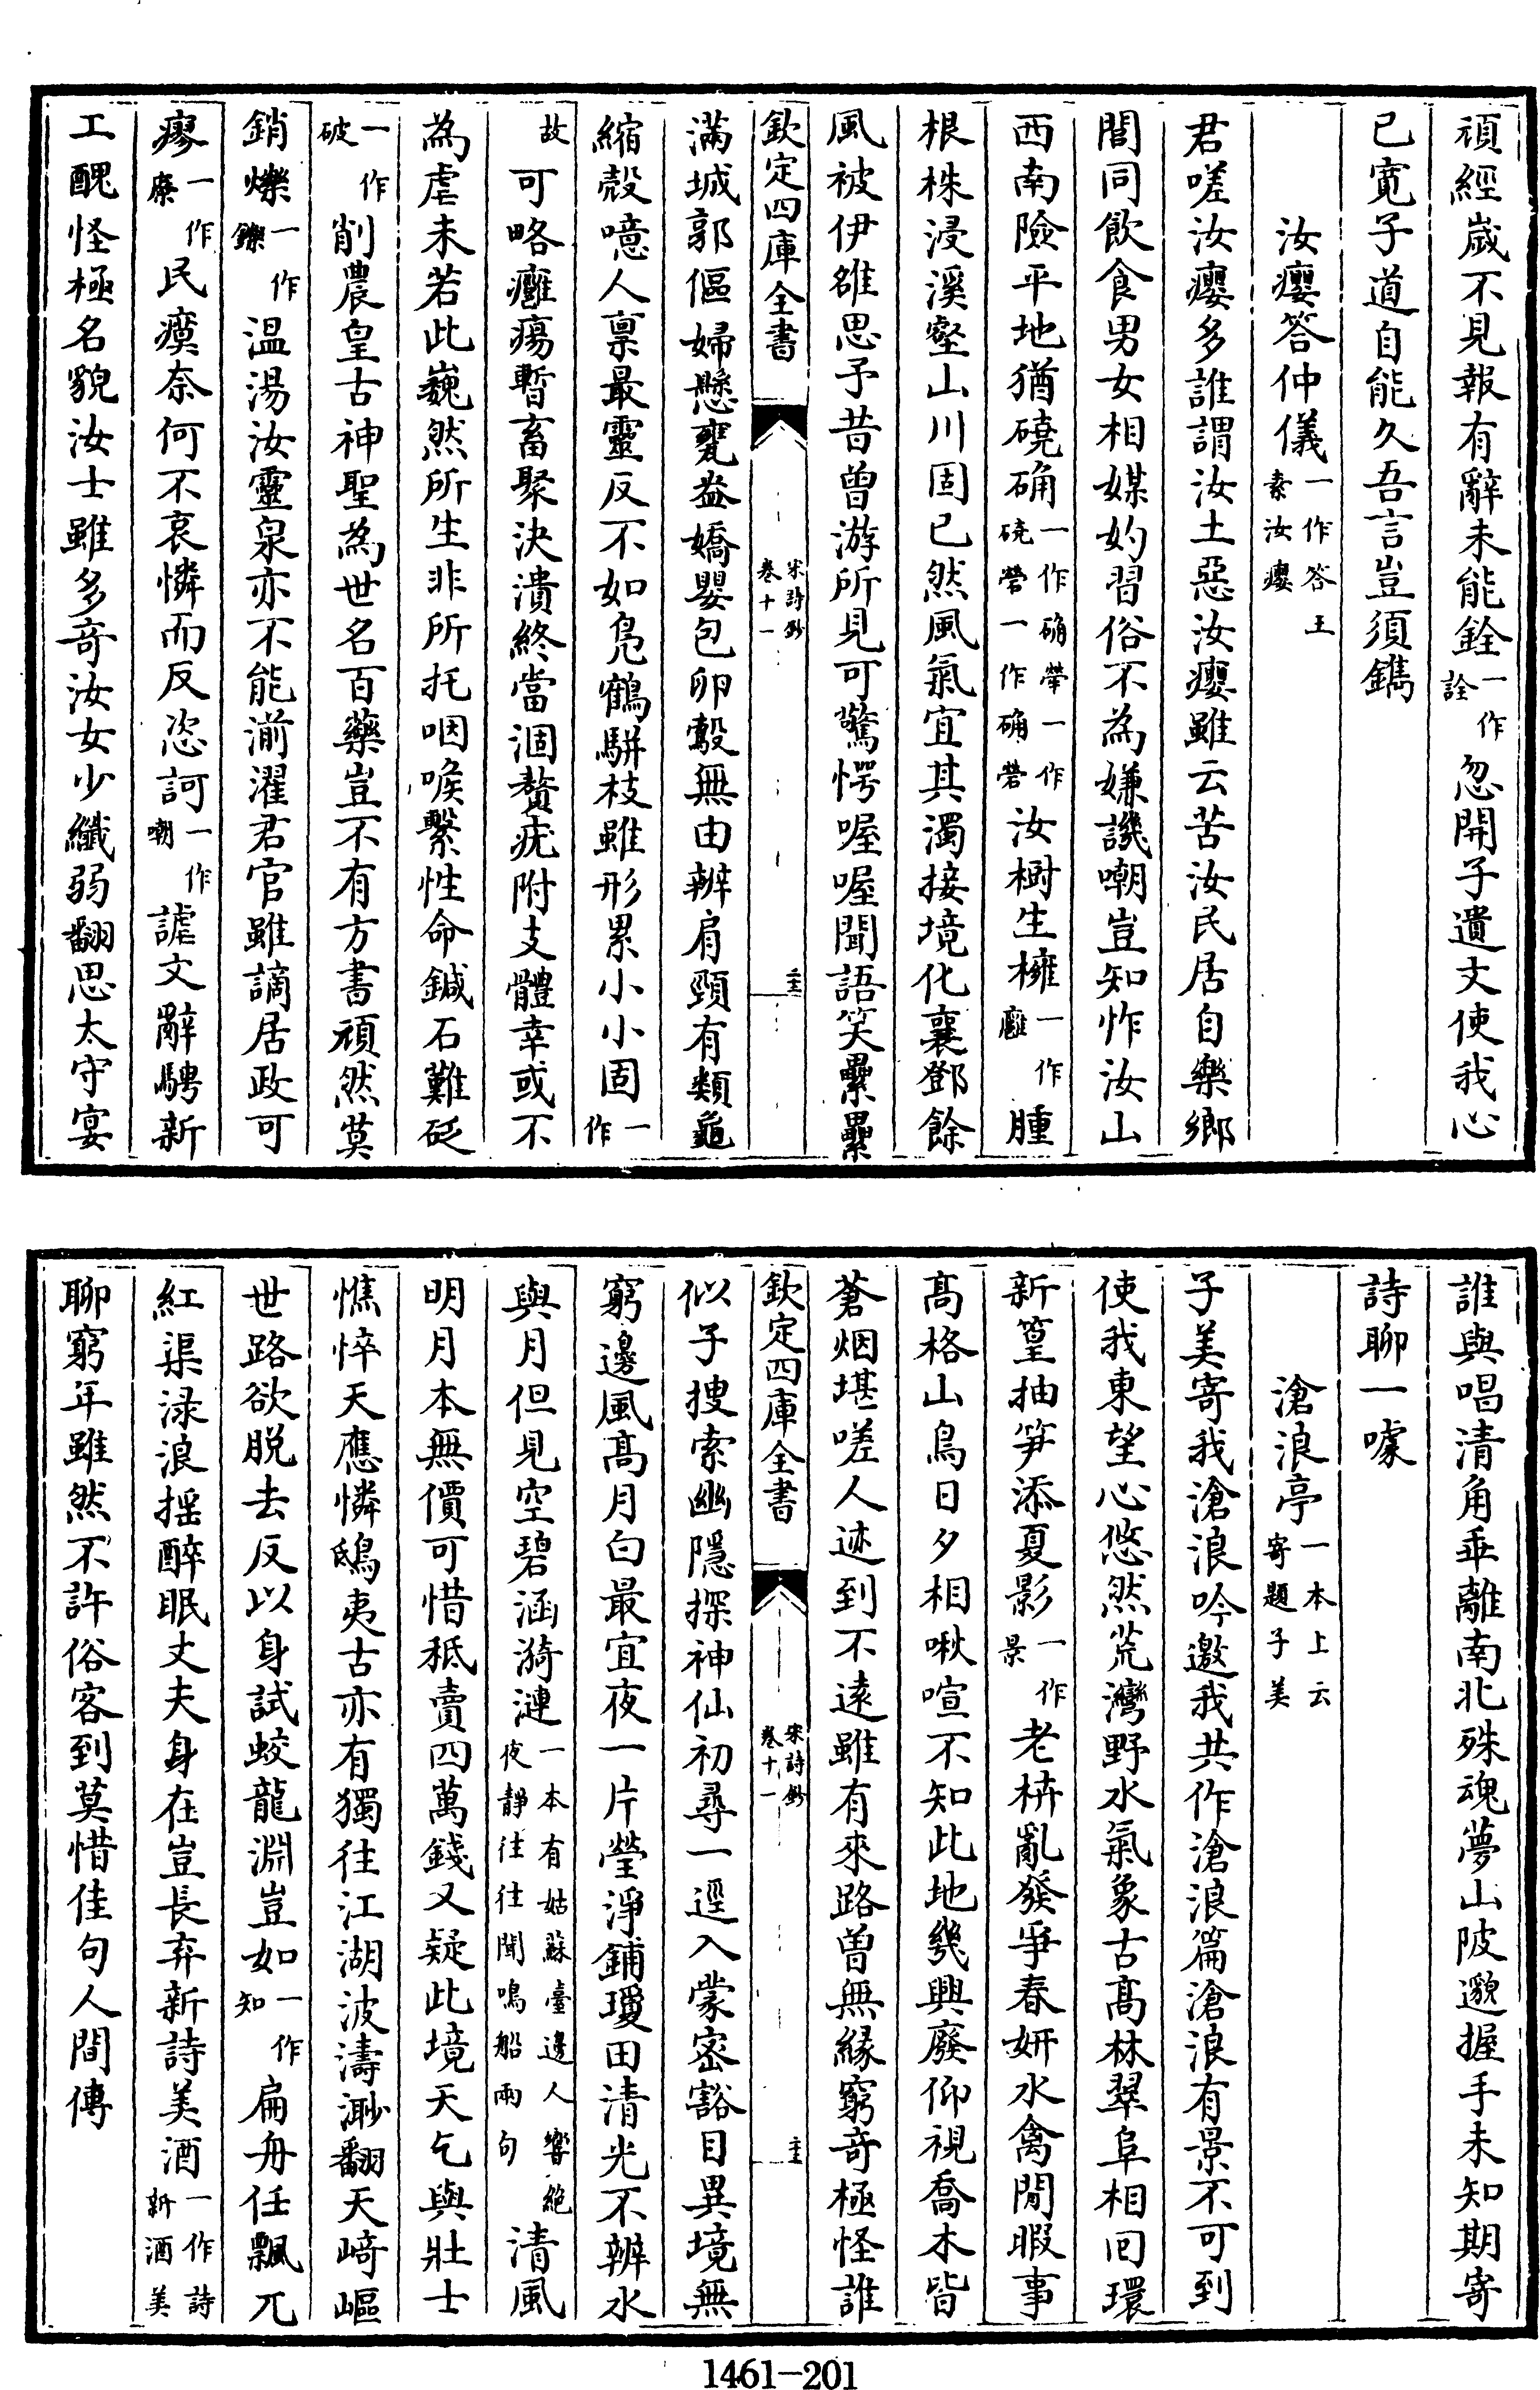 頑經嵗不見報有辭未能銓一作詮忽開子遺文使我心
已寛子道自能久吾言豈須鐫
汝癭答仲儀一作答王素汝癭
君嗟汝癭多誰謂汝土惡汝癭雖云苦汝民居自樂鄉
閭同飲食男女相媒妁習俗不為嫌譏嘲豈知怍汝山
西南險平地猶磽确一作确犖一作磽礐一作确礐汝樹生㿈一作癰腫
根株浸溪壑山川固已然風氣宜其濁接境化襄鄧餘
風被伊雒思予昔曾游所見可驚愕喔喔聞語笑纍纍
欽定四庫全書
宋詩鈔
卷十一
滿城郭傴婦懸甕盎嬌嬰包卵鷇無由辨肩頸有類龜
縮殼噫人禀最靈反不如鳬鶴駢枝雖形累小小固一作
故可略癰瘍暫畜聚決潰終當涸贅疣附支體幸或不
為虐未若此巍然所生非所托咽喉繫性命鍼石難砭
一作破削農皇古神聖為世名百藥豈不有方書頑然莫
銷爍一作鑠温湯汝靈泉亦不能湔濯君官雖謫居政可
瘳一作療民瘼奈何不哀憐而反恣訶一作嘲謔文辭騁新
工醜怪極名貌汝士雖多奇汝女少纖弱翻思太守宴
誰與唱清角乖離南北殊魂夢山陂邈握手未知期寄
詩聊一噱
滄浪亭一本上云寄題子美
子美寄我滄浪吟邀我共作滄浪篇滄浪有景不可到
使我東望心悠然荒灣野水氣象古髙林翠阜相回環
新篁抽笋添夏影一作景老枿亂發爭春妍水禽閒暇事
髙格山鳥日夕相啾喧不知此地幾興廢仰視喬木皆
蒼烟堪嗟人迹到不逺雖有來路曽無緣窮奇極怪誰
欽定四庫全書
宋詩鈔
卷十一
似子搜索幽隱探神仙初尋一逕入蒙密豁目異境無
窮邊風髙月白最宜夜一片瑩淨鋪瓊田清光不辨水
與月但見空碧涵漪漣一本有姑蘇臺邊人響絶夜靜往往聞鳴船兩句清風
明月本無價可惜秪賣四萬錢又疑此境天乞與壯士
憔悴天應憐鴟夷古亦有獨往江湖波濤渺翻天﨑嶇
世路欲脱去反以身試蛟龍淵豈如一作知扁舟任飄兀
紅渠渌浪揺醉眠丈夫身在豈長弃新詩美酒一作詩新酒美
聊窮年雖然不許俗客到莫惜佳句人間傳
1461-201